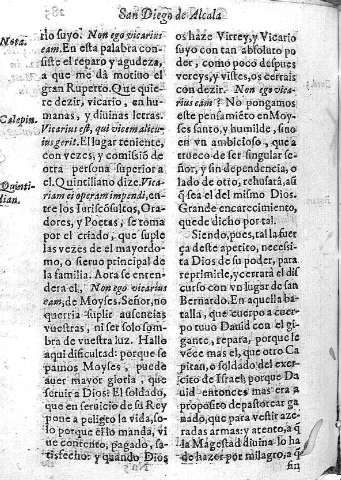 San Diego de Alcala
Nota.
rlo suyo. Non ego vicarius
eam. En esta palabra con-
siste el reparo y agudeza,
a que me dà motiuo el
gran Ruperto. Que quie-
re dezir, vicario, en hu-
manas, y diuinas letras.
Calepin.
Vicarius est, qui vicem alicu-
ius gerit. El lugar teniente,
con vezes, y comission de
otra persona superior a
el. Quintiliano dize. Vica-
Quinti-
lian.
riam ei operam impendi, en-
tre los Iuriscõsultos, Ora-
dores, y Poetas, se toma
por el criado, que suple
las vezes de el mayordo-
mo, o sieruo principal de
la familia. Aora se enten-
dera el, Non ego vicarius
eam, de Moyses. Señor, no
querria suplir ausencias
vuestras, ni ser solo som-
bra de vuestra luz. Hallo
aqui dificultad: porque se
pamos Moyses, puede
auer mayor gloria, que
seruir a Dios? El soldado,
que en seruicio de su Rey
pone a peligro la vida, so-
lo porque èl lo manda, vi
ue contento, pagado, sa-
tisfecho: y quando Dios
os haze Virrey, y Vicario
suyo con tan absoluto po
der, como poco despues
vereys, y vistes, os cerrais
con dezir. Non ego vicarius
eam? No pongamos
este pensamiẽto en Moy-
ses santo, y humilde, sino
en vn ambicioso, que a
trueco de ser singular se-
ñor, y sin dependencia, o
lado de otro, rehusarà, asi
q̃ sea el del mismo Dios.
Grande encarecimiento,
quede dicho por tal.
Siendo, pues, tal la fuer
ça deste apetito, necesi-
ta Dios de su poder, para
reprimirle, y cerrarà el dis
curso con vn lugar de san
Bernardo. En aquella ba-
talla, que cuerpo a cuer-
po tuuo Dauid con el gi-
gante, repara, porque le
vece mas el, que otro Ca
pitan, o soldado del exer-
cito de Israel; porque Da
uid entonces mas era a
proposito de pastorcar ga-
nado, que para vestir aze-
radas armas: y atento, a q̃
la Magestad diuina lo ha
de hazer por milagro, a q̃